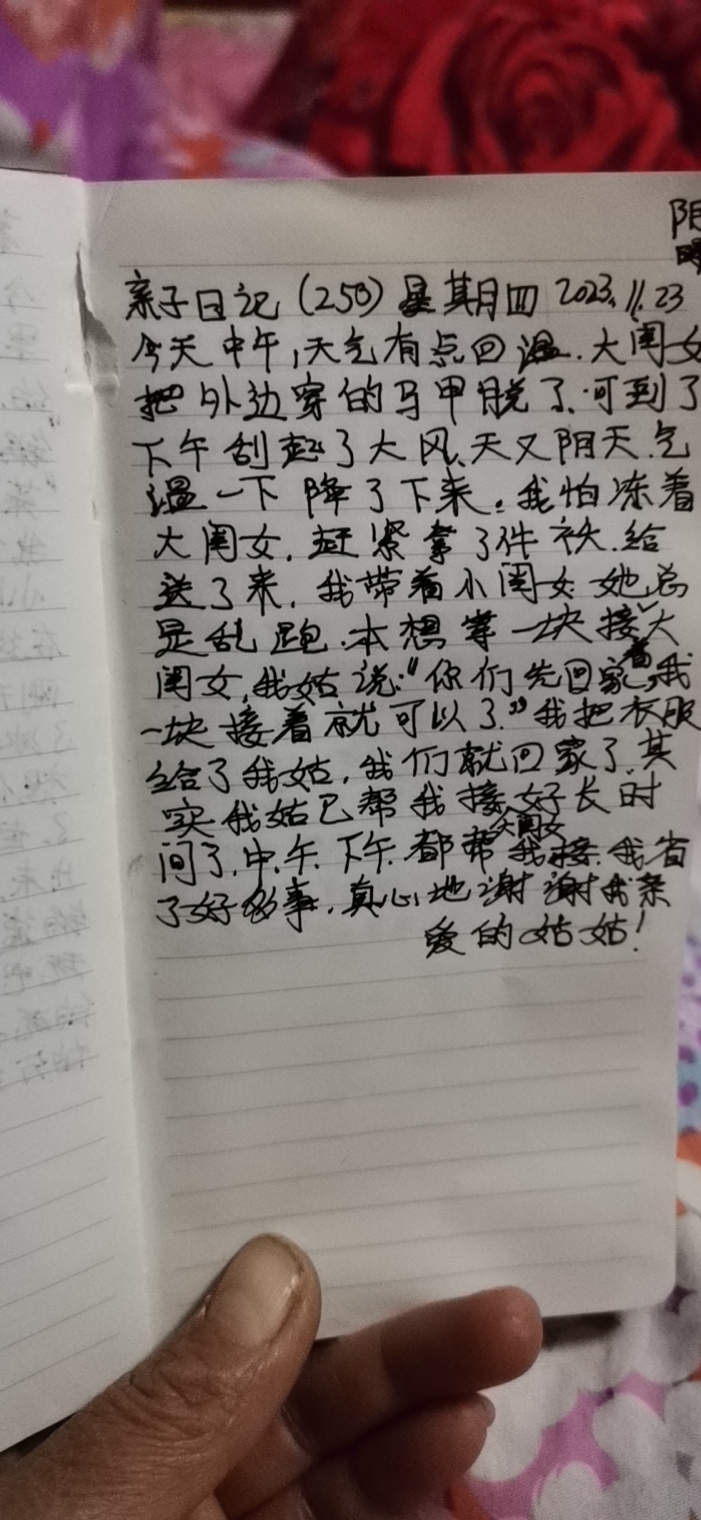 阴
亲子日记（258）星期四 2023.11.23
今天中午,天气有点回温.大闺女
把外边穿的马甲脱了.可到了
下午刮起了大风、天又阴天.气
温一下降了下来。我怕冻着
大闺女.赶紧拿了件袄.给
送了来.我带着小闺女.她总
是乱跑.本想等一块接大
闺女,我姑说:“你们先回家,我看
一块接着就可以了.”我把衣服
给了我姑,我们就回家了.其
实我姑已帮我接好长时
间了.中.午.下午.都帮我接大闺女.我省
了好多事.真心地谢谢我亲
爱的姑姑!